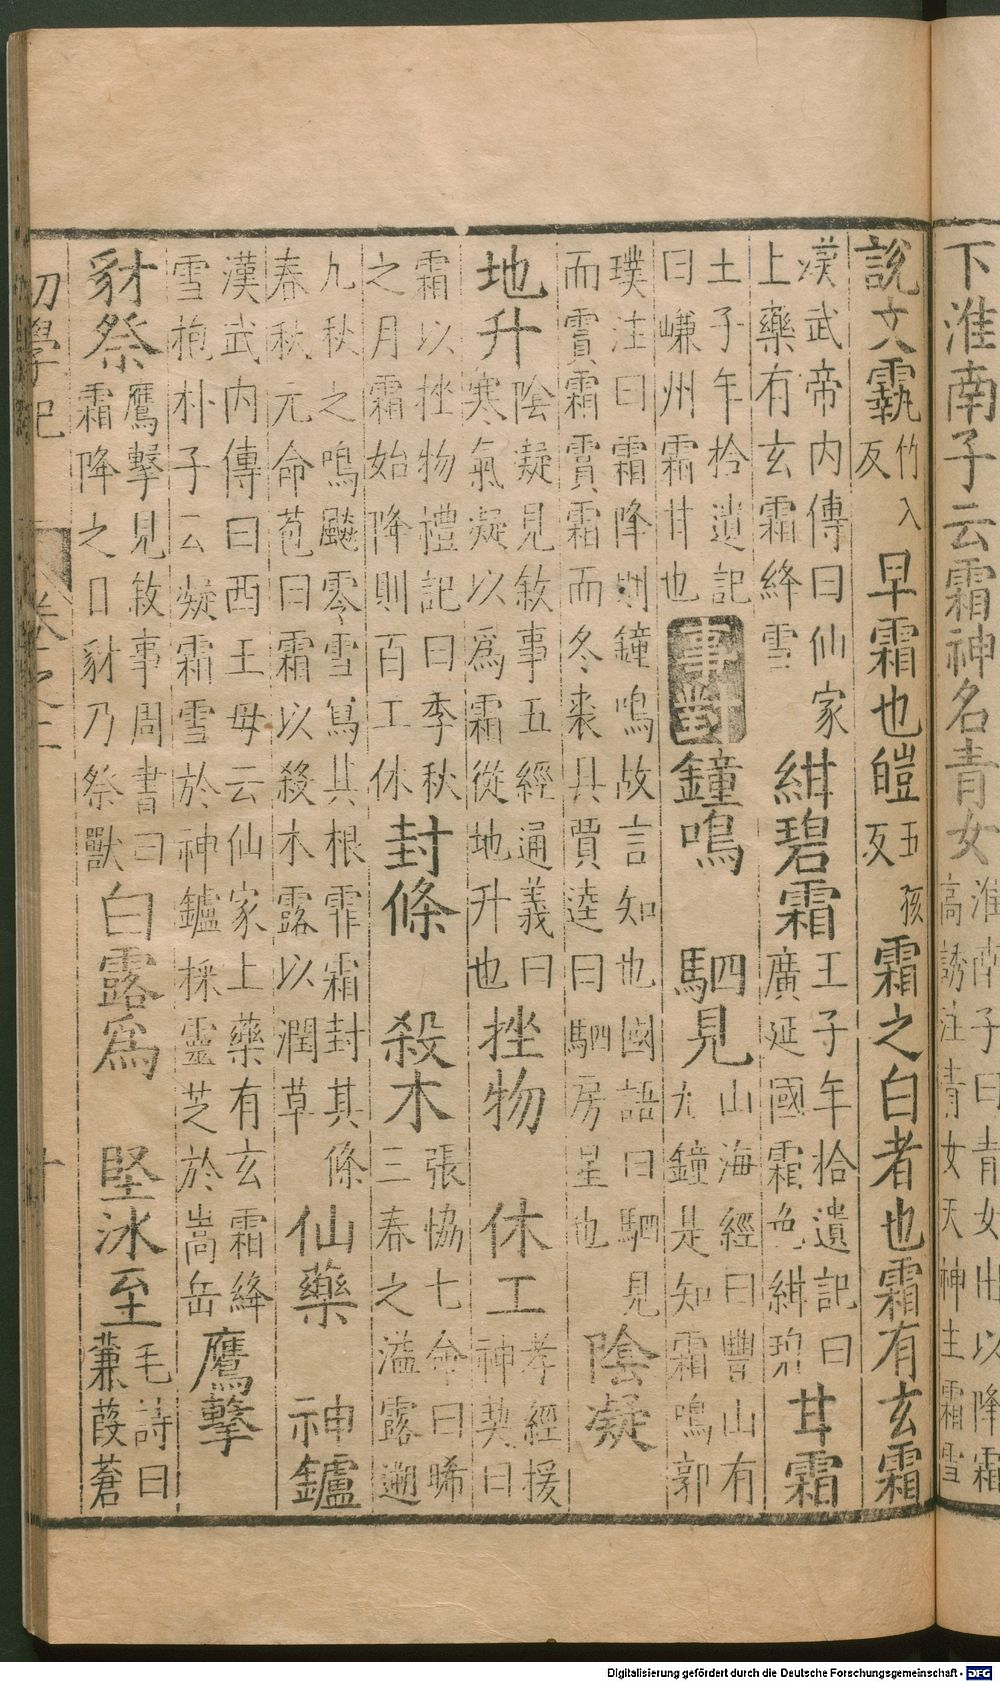 下淮南子云霜神名青女淮南子曰青女出以降霜高誘注青女天神主霜雪
說文霿竹入反早霜也皚五孩反霜之白者也霜有玄霜
漢武帝内傳曰仙家上藥有玄霜絳雪紺碧霜王子年拾遺記曰廣延國霜色紺碧甘霜
王子年拾遺記曰嵰州霜甘也事對鐘鳴 駟見山海經曰豐山有九鐘是知霜鳴郭
璞注曰霜降則鐘鳴故言知也國語曰駟見而霣霜霣霜而冬裘具賈逵曰駟房星也陰凝
地升陰凝見敘事五經通義曰寒氣凝以爲霜從地升也挫物 休工孝經援神契曰
霜以挫物禮記曰季秋之月霜始降則百工休封條 殺木張協七命曰晞三春之溢露遡
九秋之鳴飈零雪寫其根霏霜封其條春秋元命苞曰霜以殺木露以潤草仙藥 神鑪
漢武内傳曰西王母云仙家上藥有玄霜絳雪抱朴子云凝霜雪於神鑪採靈芝於嵩岳鷹擊
豺祭鷹擊見敘事周書曰霜降之日豺乃祭獸白露爲 堅冰至毛詩曰蒹葭蒼
初學記 卷之二 十
Digitalisierung gefördert durch die Deutsche Forschungsgemeinschaft - DFG